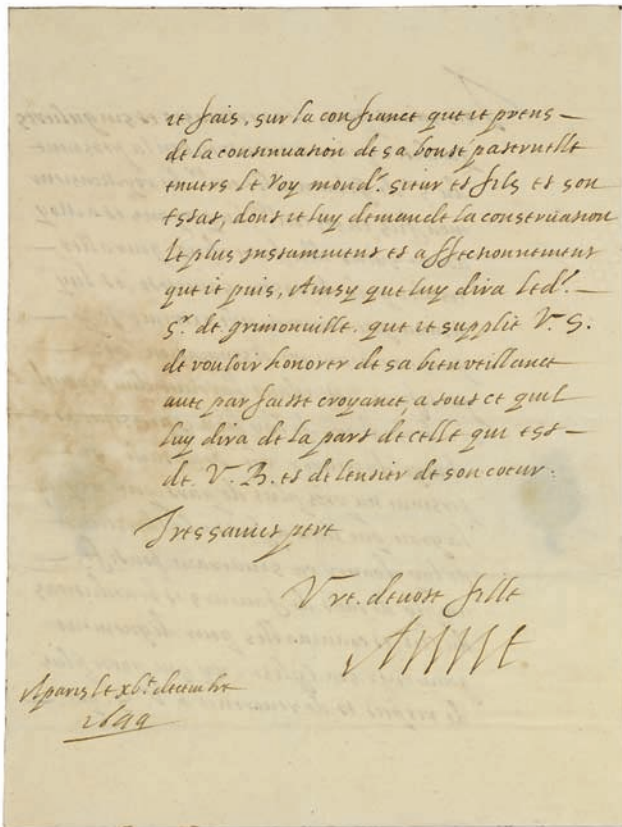 ie fais, sur la confiance que ie prens –
de la continuation de sa bonté paternelle
enuers le Roy mond.t sieur et fils et son
estat, dont ie luy demande la conseruation
le plus instamment et affectionnement
que ie puis, Ainsy que luy dira led.t –
S.r de grimonuille. que ie supplie V. S.
de vouloir honorer de sa bienveillance
auec parfaitte croyance, a tout ce quil
luy dira de la part de celle qui est –
de V. B. et de lentier de son cœur.
Tressainct pere
Vre. deuote fille
Anne
A paris le xb.e decembre
1644